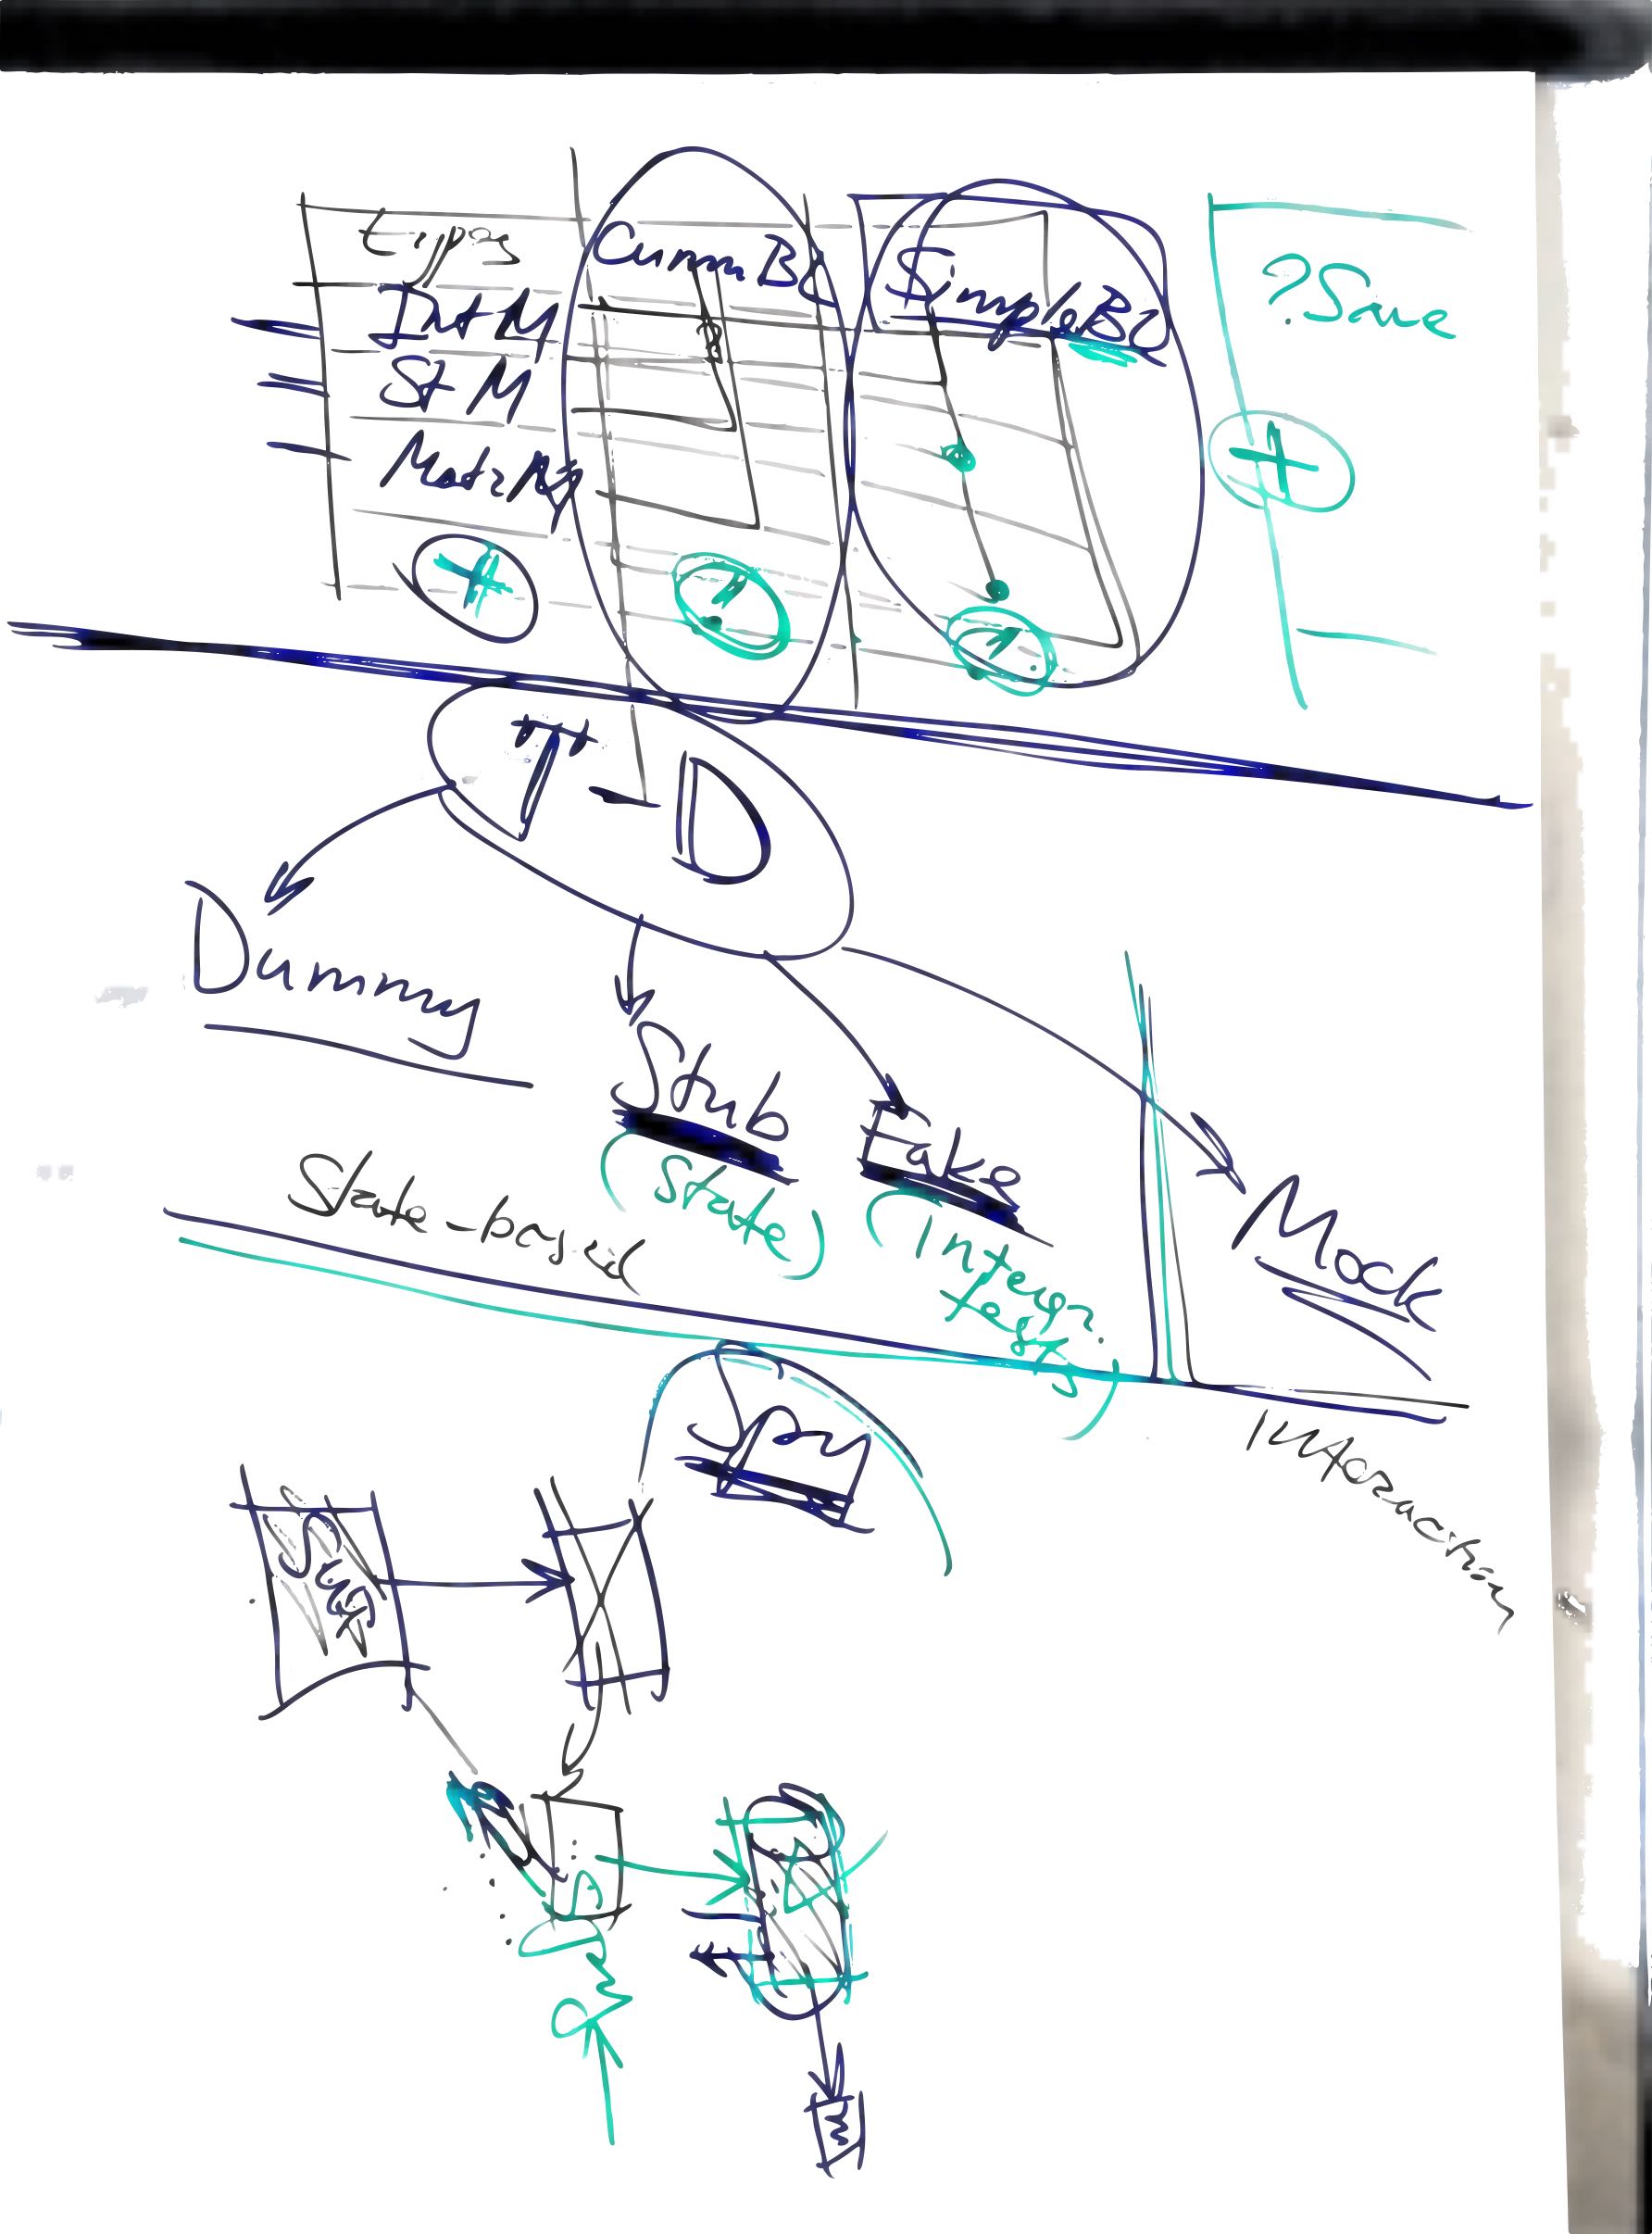 types CummBC SimpleBC ?Save
Int M
St M
Matr M
T-D
Dummy
Stub
(State)
Fake
(Integr.
tests)
Mock
State-based
Interaction
Spy
Sut